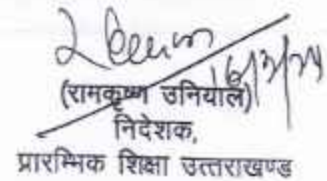 (रामकृष्ण उनियाल)
निदेशक,
प्रारम्भिक शिक्षा उत्तराखण्ड